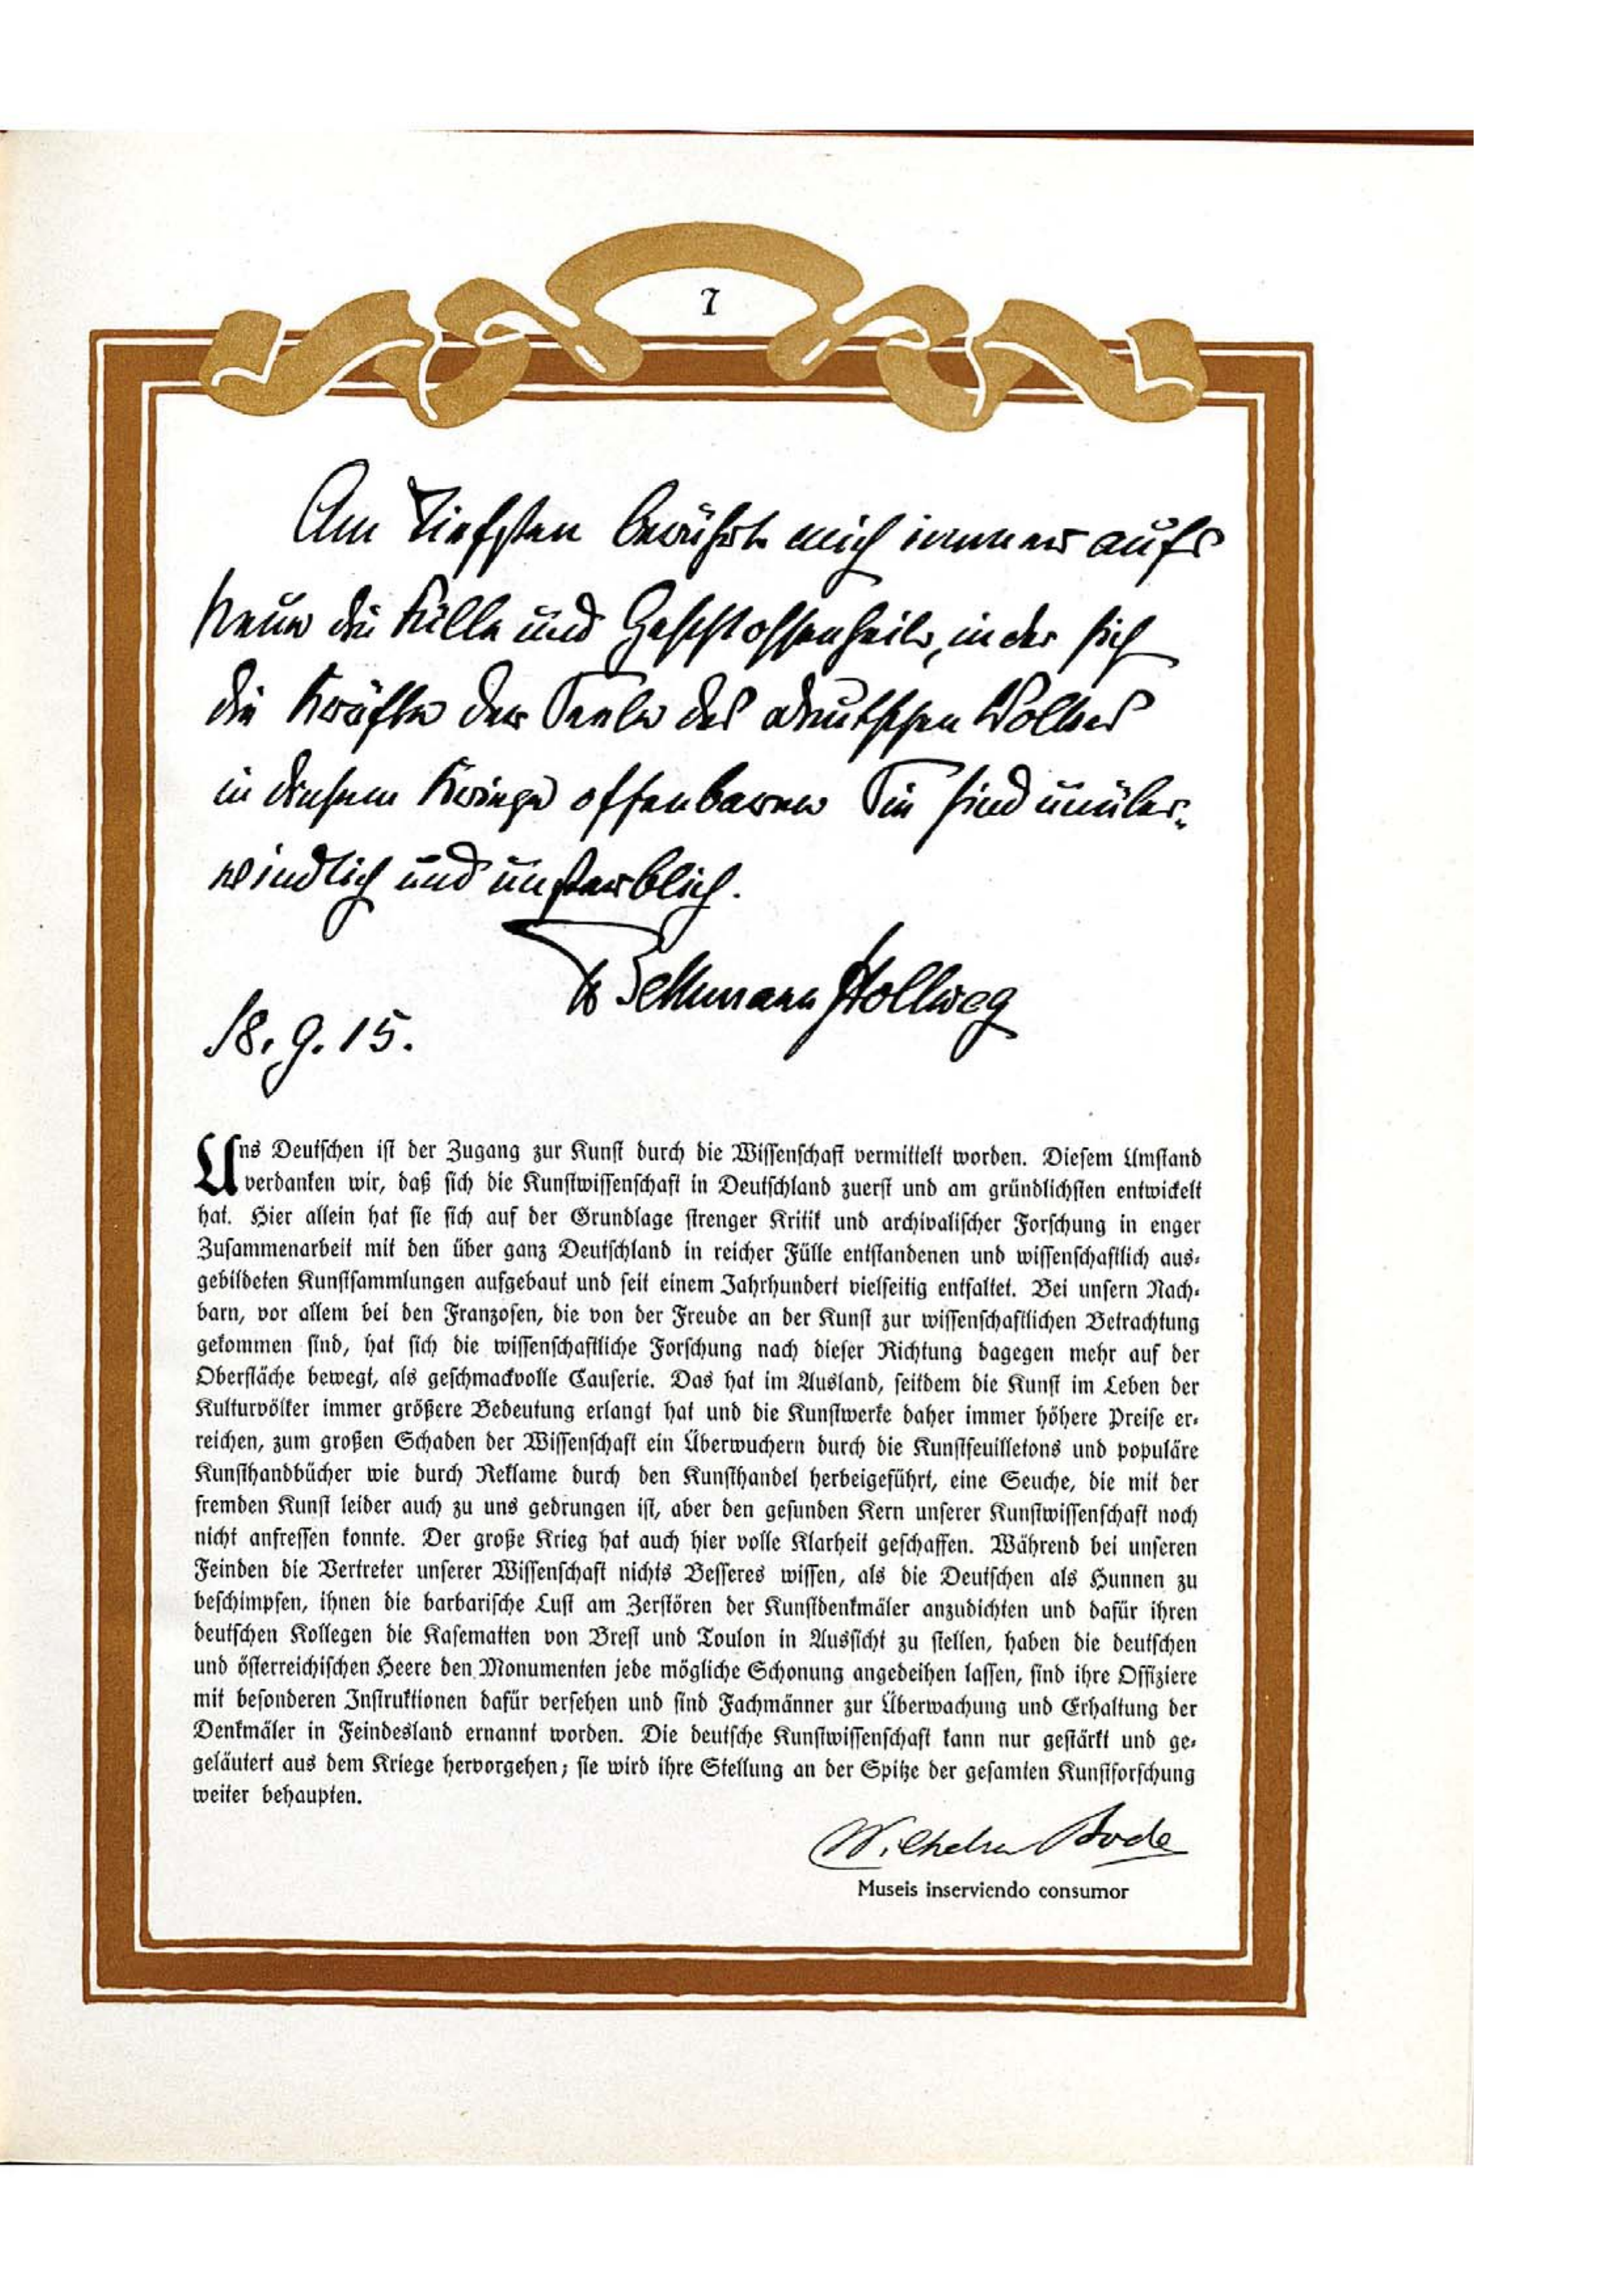 7
Am Tiefsten berührt mich immer aufs
Neue die Fülle und Geschlossenheit, in der sich
die Kräfte der Seele des deutschen Volkes
in diesem Kriege offenbaren Sie sind unüber-
windlich und unsterblich.
v Bethmann Hollweg
18. 9. 15.
Uns Deutschen ist der Zugang zur Kunst durch die Wissenschaft vermittelt worden. Diesem Umstand
verdanken wir, daß sich die Kunstwissenschaft in Deutschland zuerst und am gründlichsten entwickelt
hat. Hier allein hat sie sich auf der Grundlage strenger Kritik und archivalischer Forschung in enger
Zusammenarbeit mit den über ganz Deutschland in reicher Fülle entstandenen und wissenschaftlich aus-
gebildeten Kunstsammlungen aufgebaut und seit einem Jahrhundert vielseitig entfaltet. Bei unsern Nach-
barn, vor allem bei den Franzosen, die von der Freude an der Kunst zur wissenschaftlichen Betrachtung
gekommen sind, hat sich die wissenschaftliche Forschung nach dieser Richtung dagegen mehr auf der
Oberfläche bewegt, als geschmackvolle Causerie. Das hat im Ausland, seitdem die Kunst im Leben der
Kulturvölker immer größere Bedeutung erlangt hat und die Kunstwerke daher immer höhere Preise er-
reichen, zum großen Schaden der Wissenschaft ein Überwuchern durch die Kunstfeuilletons und populäre
Kunsthandbücher wie durch Reklame durch den Kunsthandel herbeigeführt, eine Seuche, die mit der
fremden Kunst leider auch zu uns gedrungen ist, aber den gesunden Kern unserer Kunstwissenschaft noch
nicht anfressen konnte. Der große Krieg hat auch hier volle Klarheit geschaffen. Während bei unseren
Feinden die Vertreter unserer Wissenschaft nichts Besseres wissen, als die Deutschen als Hunnen zu
beschimpfen, ihnen die barbarische Lust am Zerstören der Kunstdenkmäler anzudichten und dafür ihren
deutschen Kollegen die Kasematten von Brest und Toulon in Aussicht zu stellen, haben die deutschen
und österreichischen Heere den Monumenten jede mögliche Schonung angedeihen lassen, sind ihre Offiziere
mit besonderen Instruktionen dafür versehen und sind Fachmänner zur Überwachung und Erhaltung der
Denkmäler in Feindesland ernannt worden. Die deutsche Kunstwissenschaft kann nur gestärkt und ge-
geläutert aus dem Kriege hervorgehen; sie wird ihre Stellung an der Spitze der gesamten Kunstforschung
weiter behaupten.
Wilhelm Bode
Museis inserviendo consumor